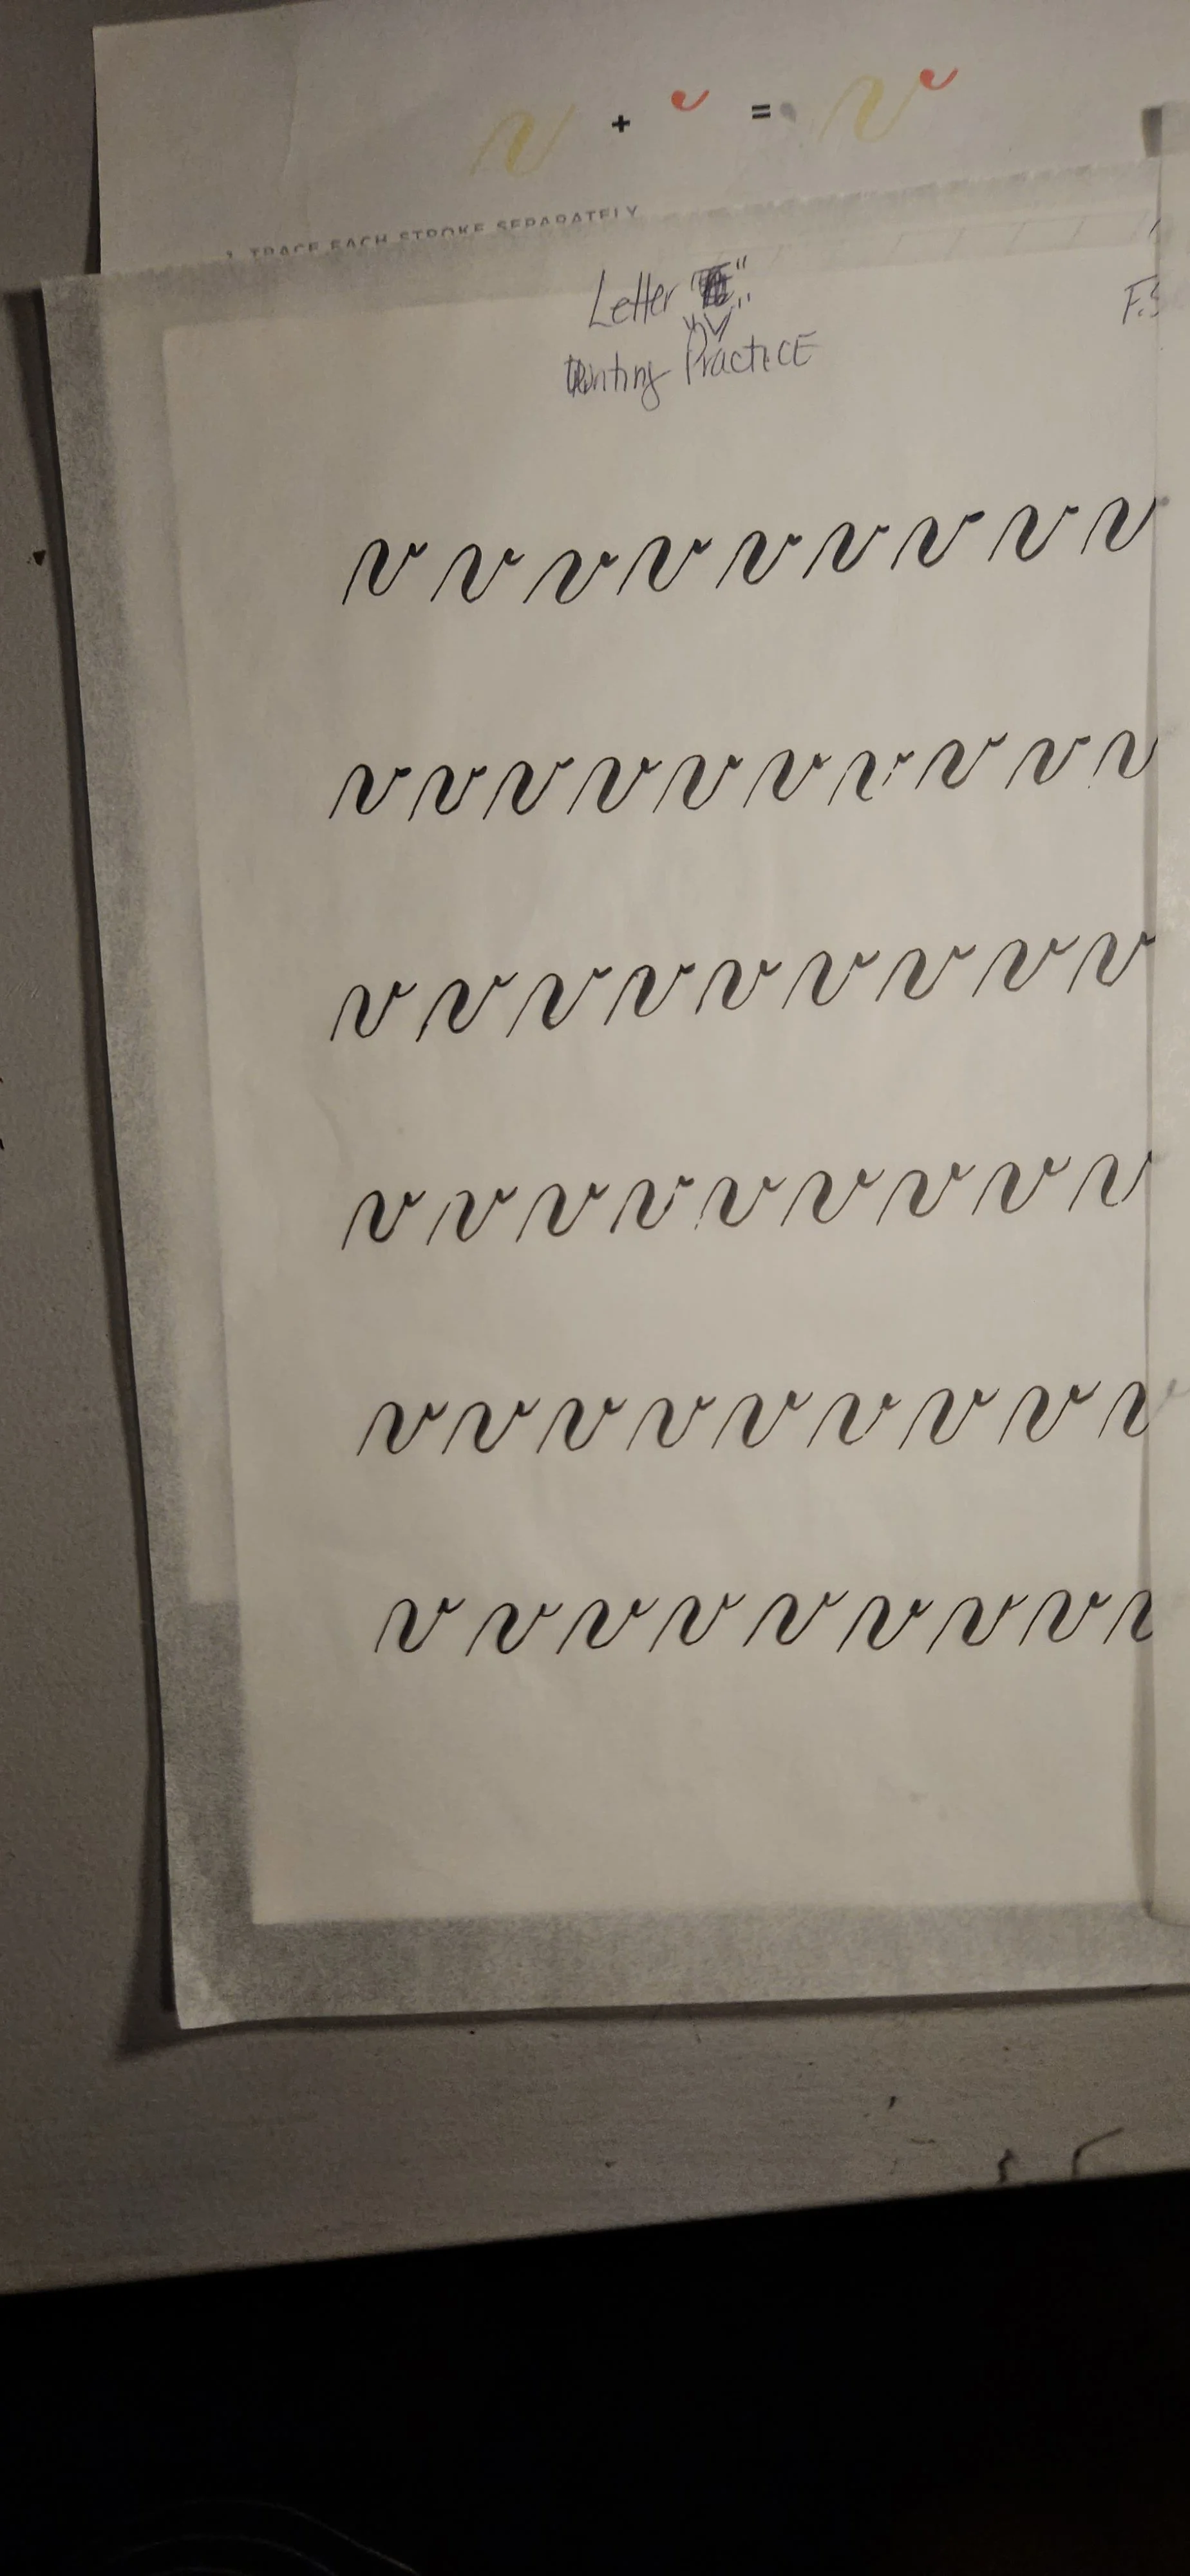 + = v
TRACE EACH STROKE SEPARATELY
Letter "V"
Practice
v v v v v v v v v
v v v v v v v v v v
v v v v v v v v v
v v v v v v v v v
v v v v v v v v v
v v v v v v v v v